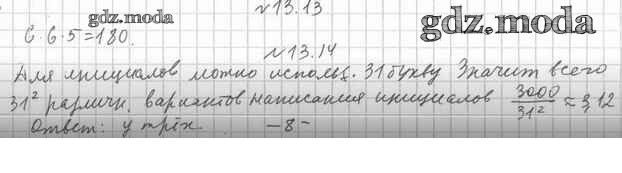 №13.13
gdz.moda
6·6·5=180.
gdz.moda
№13.14
Для инициалов можно использ. 31 букву Значит всего
31² различн. вариантов написания инициалов 3000/31² ≈ 3,12
Ответ: у трёх. -8-